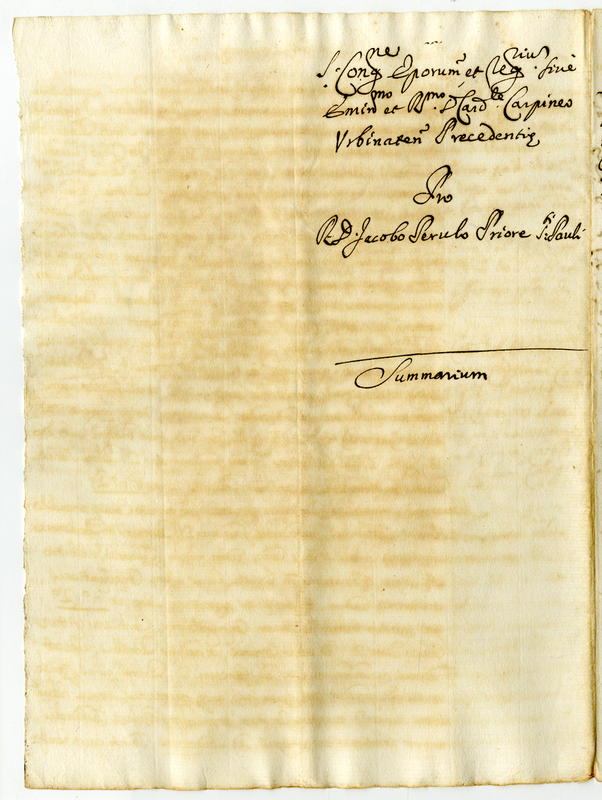 S. Cong.ne Eporum et Reg.rium sive
Emin.mo et R.mo D. Card.le Carpineo
Urbinaten Precedentiæ
Pro
R. D. Jacobo Perulo Priore S.ti Pauli
Summarium